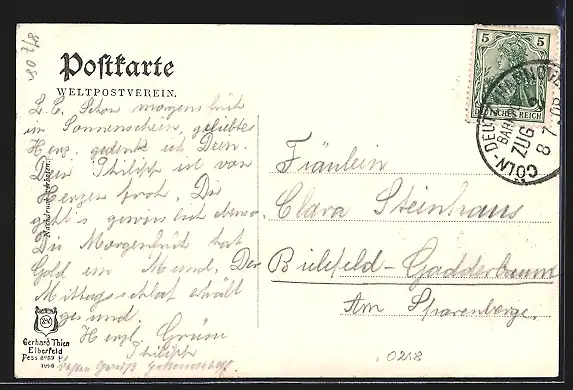 8/7 08.
Postkarte
WELTPOSTVEREIN.
L. C. Schon morgens früh
im Sonnenschein, geliebtes
Herz, gedenke ich Dein.
Dein Philipp ist von
Herzen froh, Dir
geht's gewisslich ebenso.
Die Morgenstund hat
Gold im Mund, Der
Mittagsschlaf erhält
gesund.
Herzl. Grüsse
Philipp
Nachdruck verboten.
Gerhard Thien
Elberfeld
1908
5 5
DEUTSCHES REICH
CÖLN-DEUTZ HANNOVER
BAHNPOST
ZUG
8 7 08
Fräulein
Clara Steinhaus
Bielefeld-Gadderbaum
Am Sparenberge.
0218